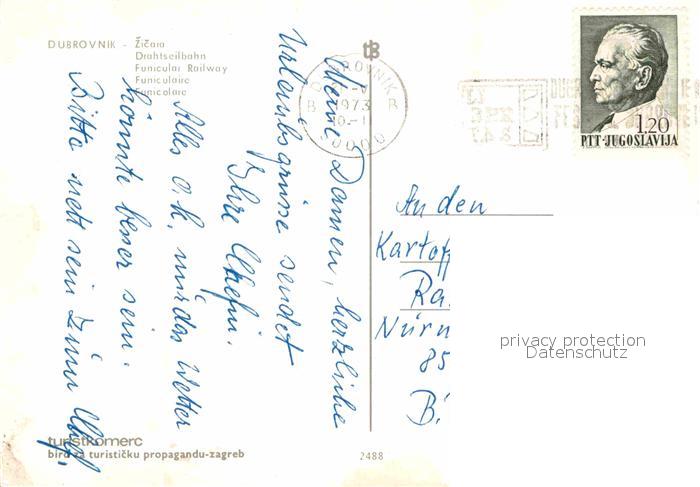 DUBROVNIK - Žičara
Drahtseilbahn
Funicular Railway
Funiculaire
Funicolare
Meine Damen, herzliche
Urlaubsgrüsse sendet
Ihre Chefin.
Alles o.k. nur das Wetter
könnte besser sein.
Bitte nett sein zum Chef.
DUBROVNIK
1973
B B
20000
1.20
PTT-JUGOSLAVIJA
An den
Kartoff
Ra.
Nürn
85
B.
privacy protection
Datenschutz
turistkomerc
biro za turističku propagandu-zagreb
2488